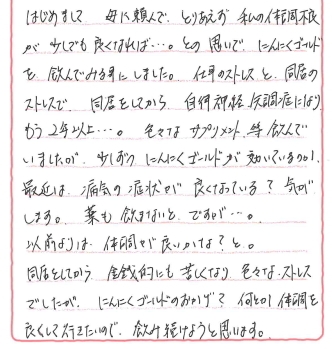 はじめまして 母に頼んで、とりあえず 私の体調不良
が 少しでも良くなれば…。との思いで、にんにくゴールド
を 飲んでみる事にしました。仕事のストレスと、同居の
ストレスで、同居をしてから、自律神経失調症になり
もう2年以上…。色々な サプリメント等飲んで
いましたが、少しずつ にんにくゴールドが 効いているのか、
最近は 病気の症状が 良くなっている？ 気が
します。薬も 飲まないと、ですが…。
以前よりは 体調が良いかな？と。
同居をしてから 金銭的にも 苦しくなり 色々なストレス
でしたが、にんにくゴールドのおかげ？ 何とか 体調を
良くして行きたいので、飲み続けようと思います。